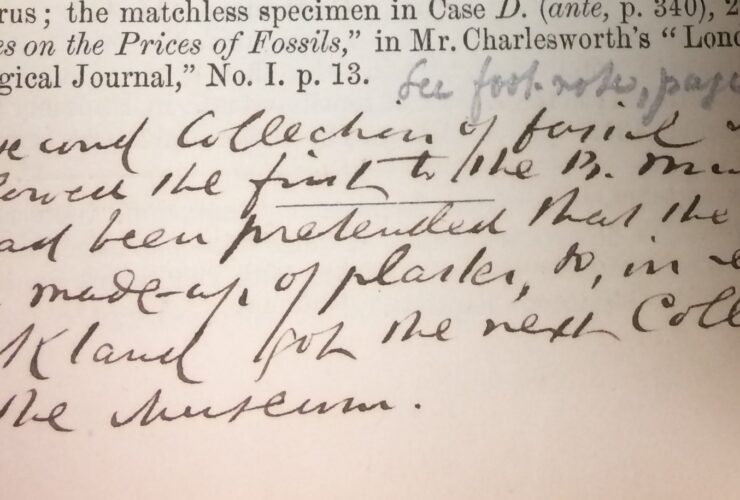 rus; the matchless specimen in Case D. (ante, p. 340), 2
es on the Prices of Fossils," in Mr. Charlesworth's "Lond
gical Journal," No. I. p. 13.
See foot-note, page
second Collection of fossil
lowed the first to the B. Mu
ad been pretended that the
made-up, of plaster, &, in
kland got the next Coll
the Museum.